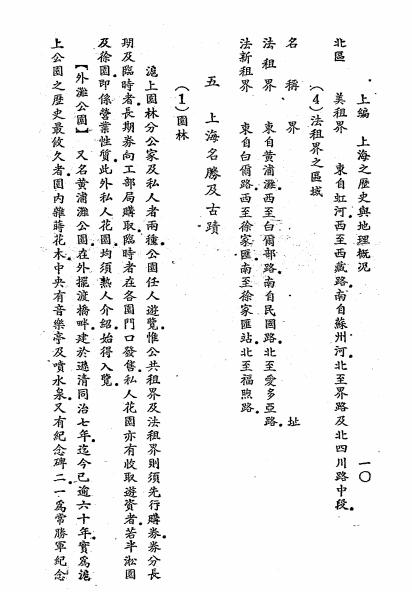 上編　上海之歷史與地理概況　一〇
北區　美租界　東自虹河。西至西藏路。南自蘇州河。北至界路及北四川路中段。
（4）法租界之區域
名稱　界　址
法租界　東自黃浦灘。西至白爾部路。南自民國路。北至愛多亞路。
法新租界　東自白爾路。西至徐家匯。南至徐家匯站。北至福煦路。
五　上海名勝及古蹟
（1）園林
滬上園林分公家及私人者兩種。公園任人遊覽。惟公共租界及法租界則須先行購券。券分長
期及臨時者。長期券向工部局購取。臨時者在各園門口發售。私人花園亦有收取遊資者。若半淞園
及徐園即係營業性質。此外私人花園均須熟人介紹。始得入覽。
【外灘公園】　又名黃浦灘公園。在外擺渡橋畔。建於遜清同治七年。迄今已逾六十年。實爲滬
上公園之歷史最攸久者。園內雜蒔花木。中央有音樂亭及噴水泉。又有紀念碑二。一爲常勝軍紀念